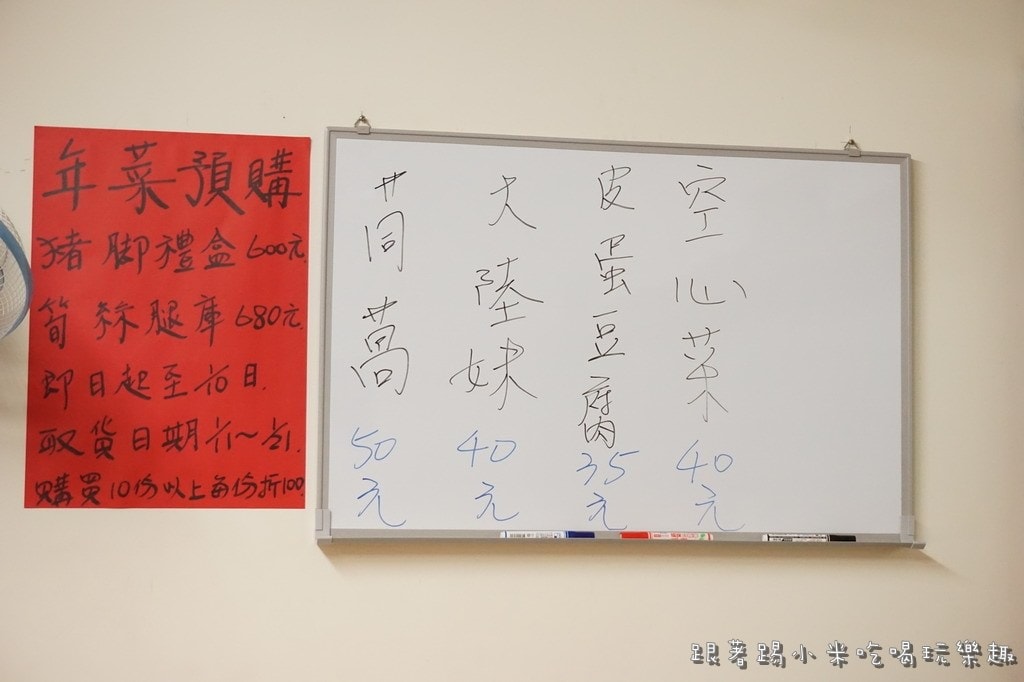 年菜預購
豬腳禮盒600元.
筍絲腿庫680元.
即日起至1/10日.
取貨日期1/11～1/21.
購買10份以上每份折100.
空心菜40元
皮蛋豆腐35元
大陸妹40元
茼萵50元
跟著踢小米吃喝玩樂趣